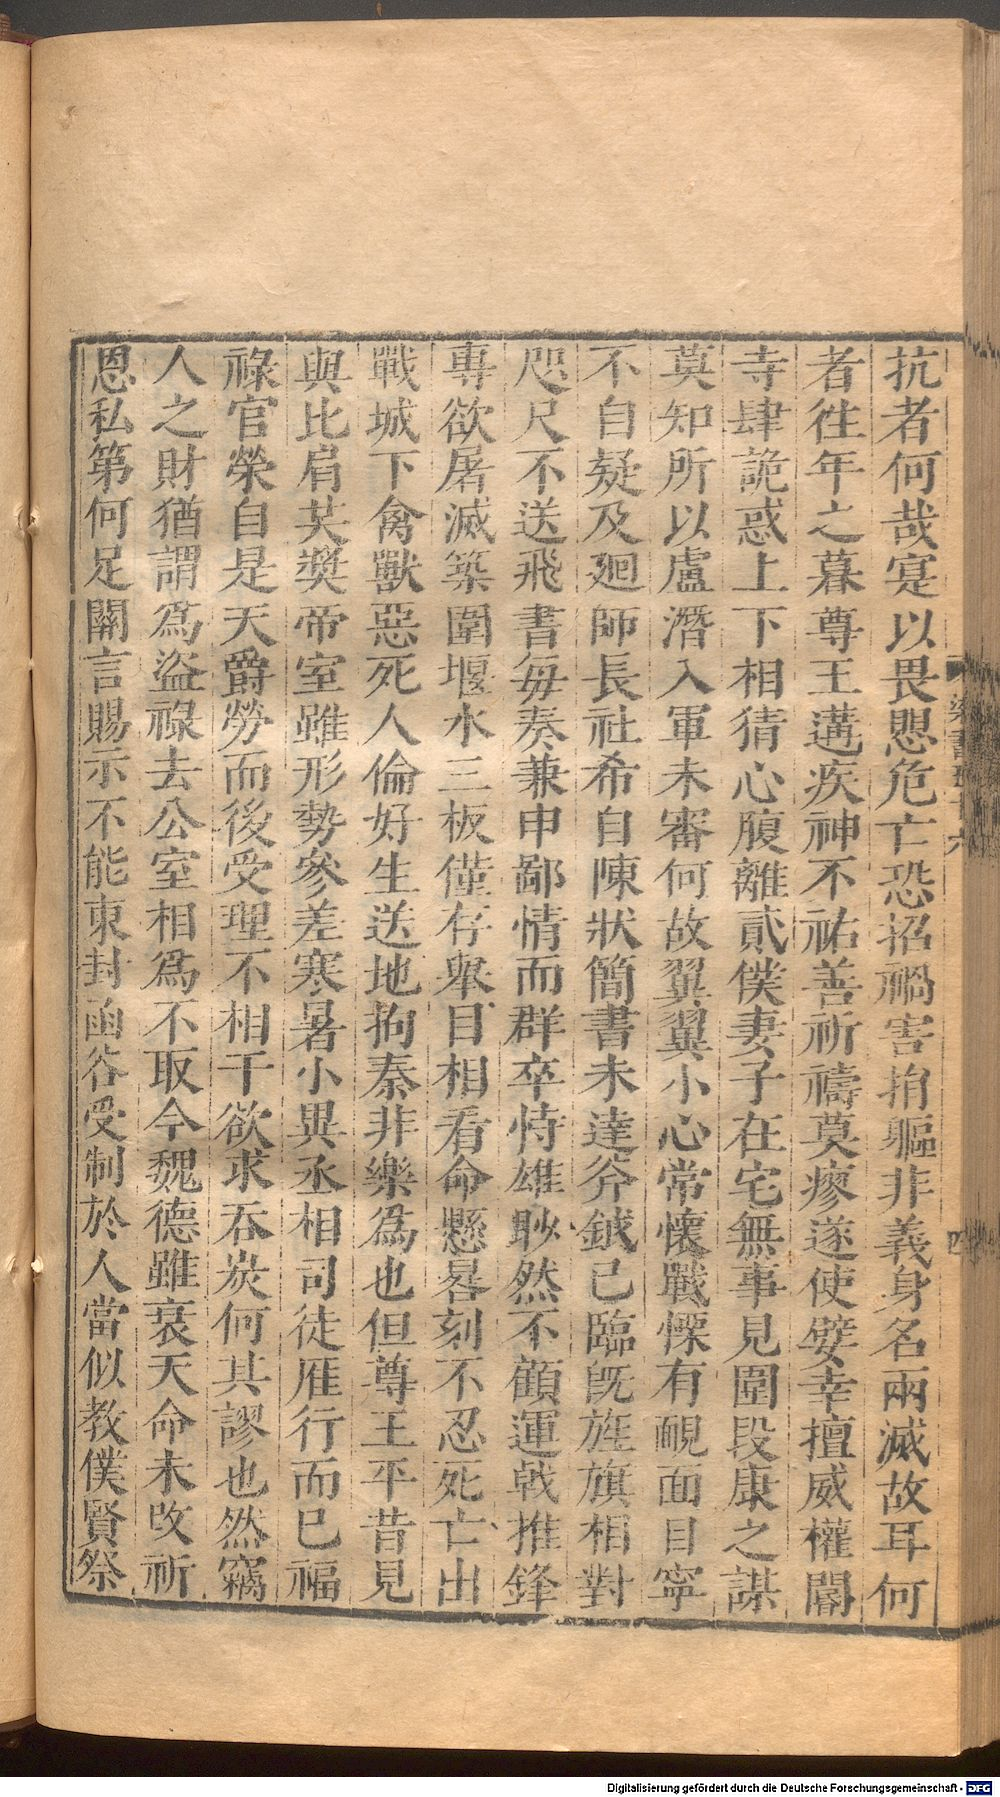 抗者何哉寔以畏愳危亡恐招禍害捐軀非義身名兩滅故耳何
者往年之暮尊王遘疾神不祐善祈禱莫瘳遂使嬖幸擅威權閹
寺肆詭惑上下相猜心腹離貳僕妻子在宅無事見圍段康之謀
莫知所以盧潛入軍未審何故翼翼小心常懷戰慄有靦面目寧
不自疑及廻師長社希自陳狀簡書未達斧鉞已臨旣旌旗相對
咫尺不送飛書每奏兼申鄙情而群卒恃雄眇然不顧運戟推鋒
專欲屠滅築圍堰水三板僅存舉目相看命懸晷刻不忍死亡出
戰城下禽獸惡死人倫好生送地拘秦非樂為也但尊王平昔見
與比肩共奬帝室雖形勢參差寒暑小異丞相司徒雁行而已福
祿官榮自是天爵勞而後受理不相干欲求呑炭何其謬也然竊
人之財猶謂為盜祿去公室相為不取今魏德雖衰天命未改祈
恩私第何足關言賜示不能東封函谷受制於人當似教僕賢祭
梁書五十六
四
Digitalisierung gefördert durch die Deutsche Forschungsgemeinschaft - DFG